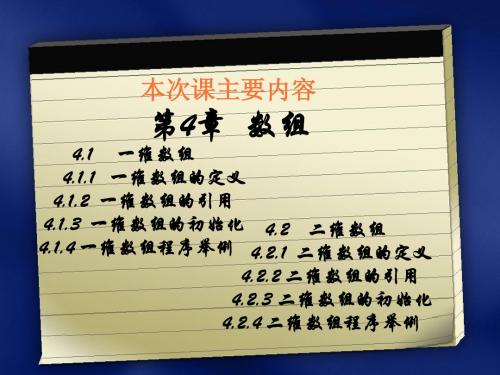 本次课主要内容
第4章 数组
4.1 一维数组
4.1.1 一维数组的定义
4.1.2 一维数组的引用
4.1.3 一维数组的初始化
4.1.4 一维数组程序举例
4.2 二维数组
4.2.1 二维数组的定义
4.2.2 二维数组的引用
4.2.3 二维数组的初始化
4.2.4 二维数组程序举例